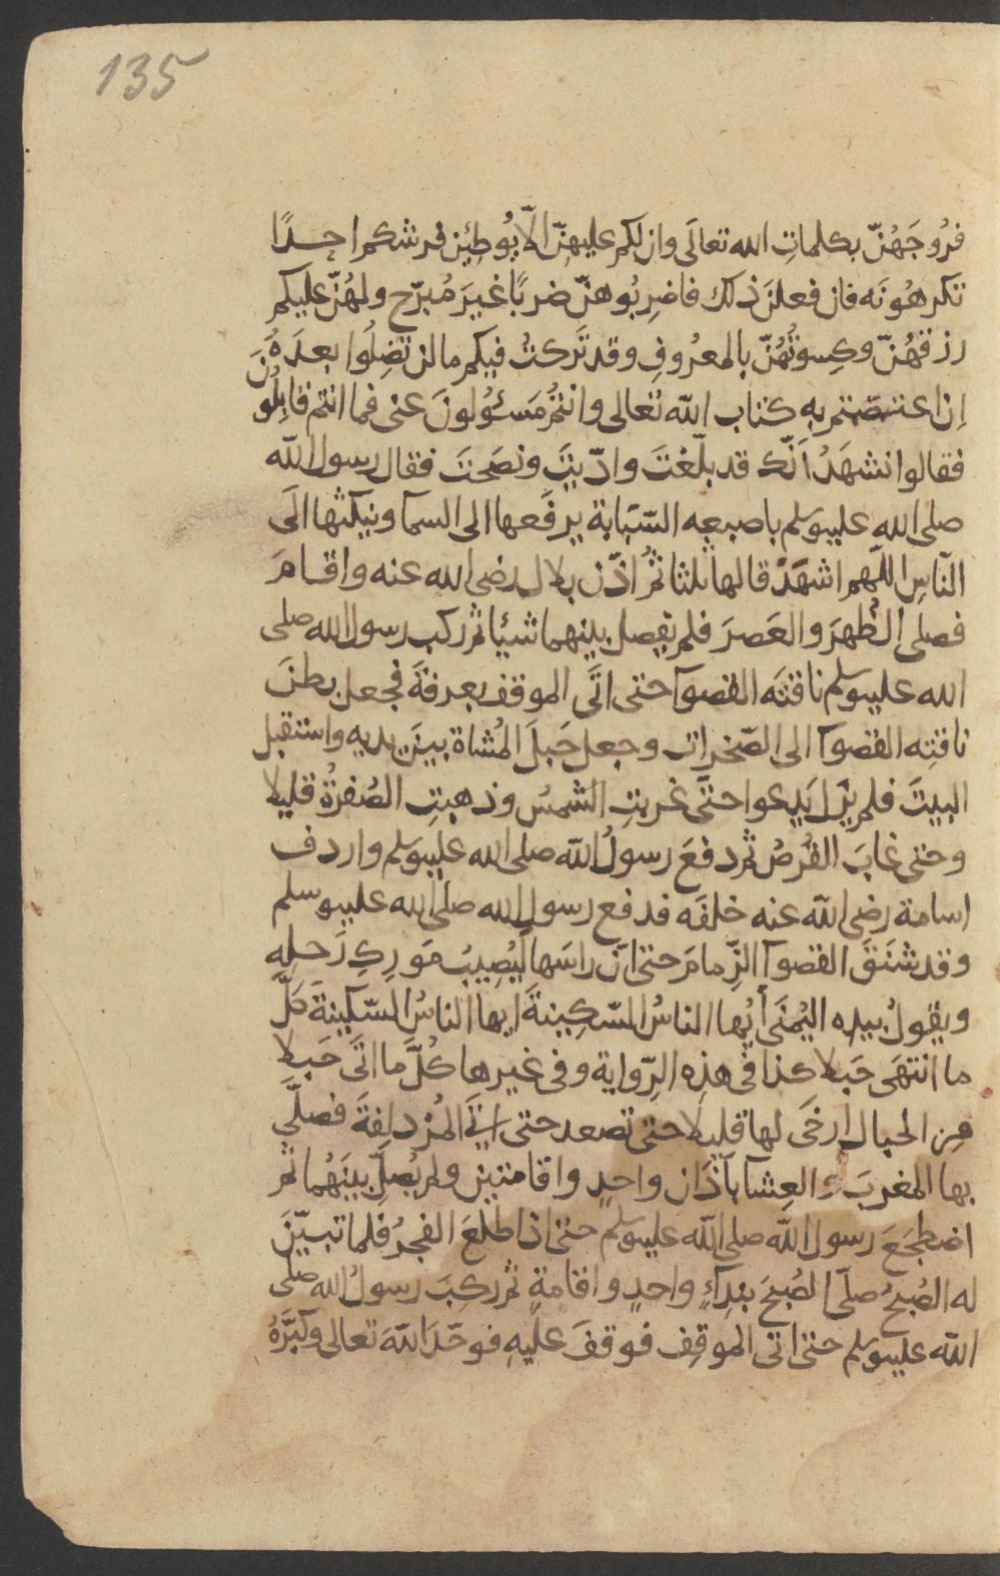 135
فرُوجَهُنّ بكلماتِ الله تعالَى وان لكم عليهِنّ الّا يُوطِئن فرشكم احدًا
تكرهُونَه فان فعلنَ ذلك فاضرِبُوهنّ ضربًا غيرَ مُبرّحٍ ولهُنّ عليكم
رزقهُنّ وكِسوتُهُنّ بالمعرُوفِ وقد تَركتُ فيكم ما لن تضِلُوا بعدَهُ
اِن اعتصمتم به كتاب الله تعالى وانتمُ مَسئُولونَ عنى فما انتم قايِلُونَ
فقالوا نشهَدُ اَنّك قد بلّغتَ وادّيتَ ونصَحتَ فقال رسول الله
صلى الله عليه وسلم باصبعِه السّبّابة يرفَعها الى السما وينكتُها الَى
النّاسِ اللّهم اشهَدْ قالها ثلثا ثمُ اذّن بلال رضى الله عنه واقامَ
فصلى الظُهرَ والعَصرَ فلم يفصِل بينهما شيئا ثم ركب رسول الله صلى
الله عليه وسلم ناقتَه القصوآ حتى اتَى الموقف بعرفةَ فجعل بطنَ
ناقتِه القصوآ الى الصّخراتِ وجعل حَبلَ المُشاة بينَ يديه واستقبل
البيتَ فلم يزَل يَدعوا حتَّى غربتِ الشمسُ وذهبتِ الصُفرةُ قليلا
وحتى غابَ القُرصُ ثم دفعَ رسولُ الله صلى الله عليه وسلم واردف
اسامة رضى الله عنه خلفَه فدفع رسول الله صلى الله عليه وسلم
وقد شنَقَ القصوآ الزِّمامَ حتى انّ راسَها ليُصِيبُ مَورِكِ رَحلِه
ويقولُ بيده اليُمنَى أيّها الناسُ السّكِينةَ ايها الناسُ السّكينةَ كلَّ
ما انتهَى حَبلا كذا فى هذِه الرّواية وفى غيرِها كُلَّ ما اتَى حَبلا
مِن الحبال ارخَى لها قليلا حتى تصعد حتى اتى المُزدلِفةَ فصلَّى
بها المغربَ والعِشا باَذَان واحدٍ واقامتين ولم يُصلِّ بينَهُما ثم
اضطجَعَ رسول الله صلى الله عليه وسلم حتى اذا طلعَ الفجرُ فلما تبيّنَ
له الصُبحُ صلّى الصُبحَ بنِدآءٍ واحدٍ واقامةٍ ثم ركِبَ رسولُ الله صلى
الله عليه وسلم حتى اتى الموقِف فوقفَ عليهِ فوحّدَ اللهَ تعالى وكبَّرَهُ